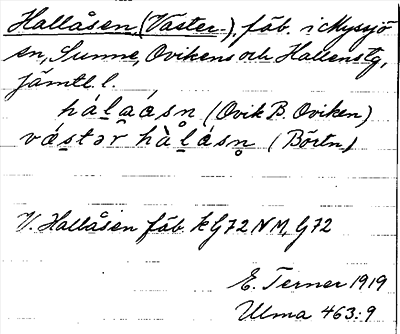 Hallåsen, (Väster-), fäb. i Myssjö
en, Sunne, Ovikens och Hallens tg,
Jämtl. l.
hálaásn (Ovik B. Oviken)
västər hàlásn (Börtn)
V. Hallåsen fäb. k G72 NM, G72
E. Terner 1919
Ulma 463:9